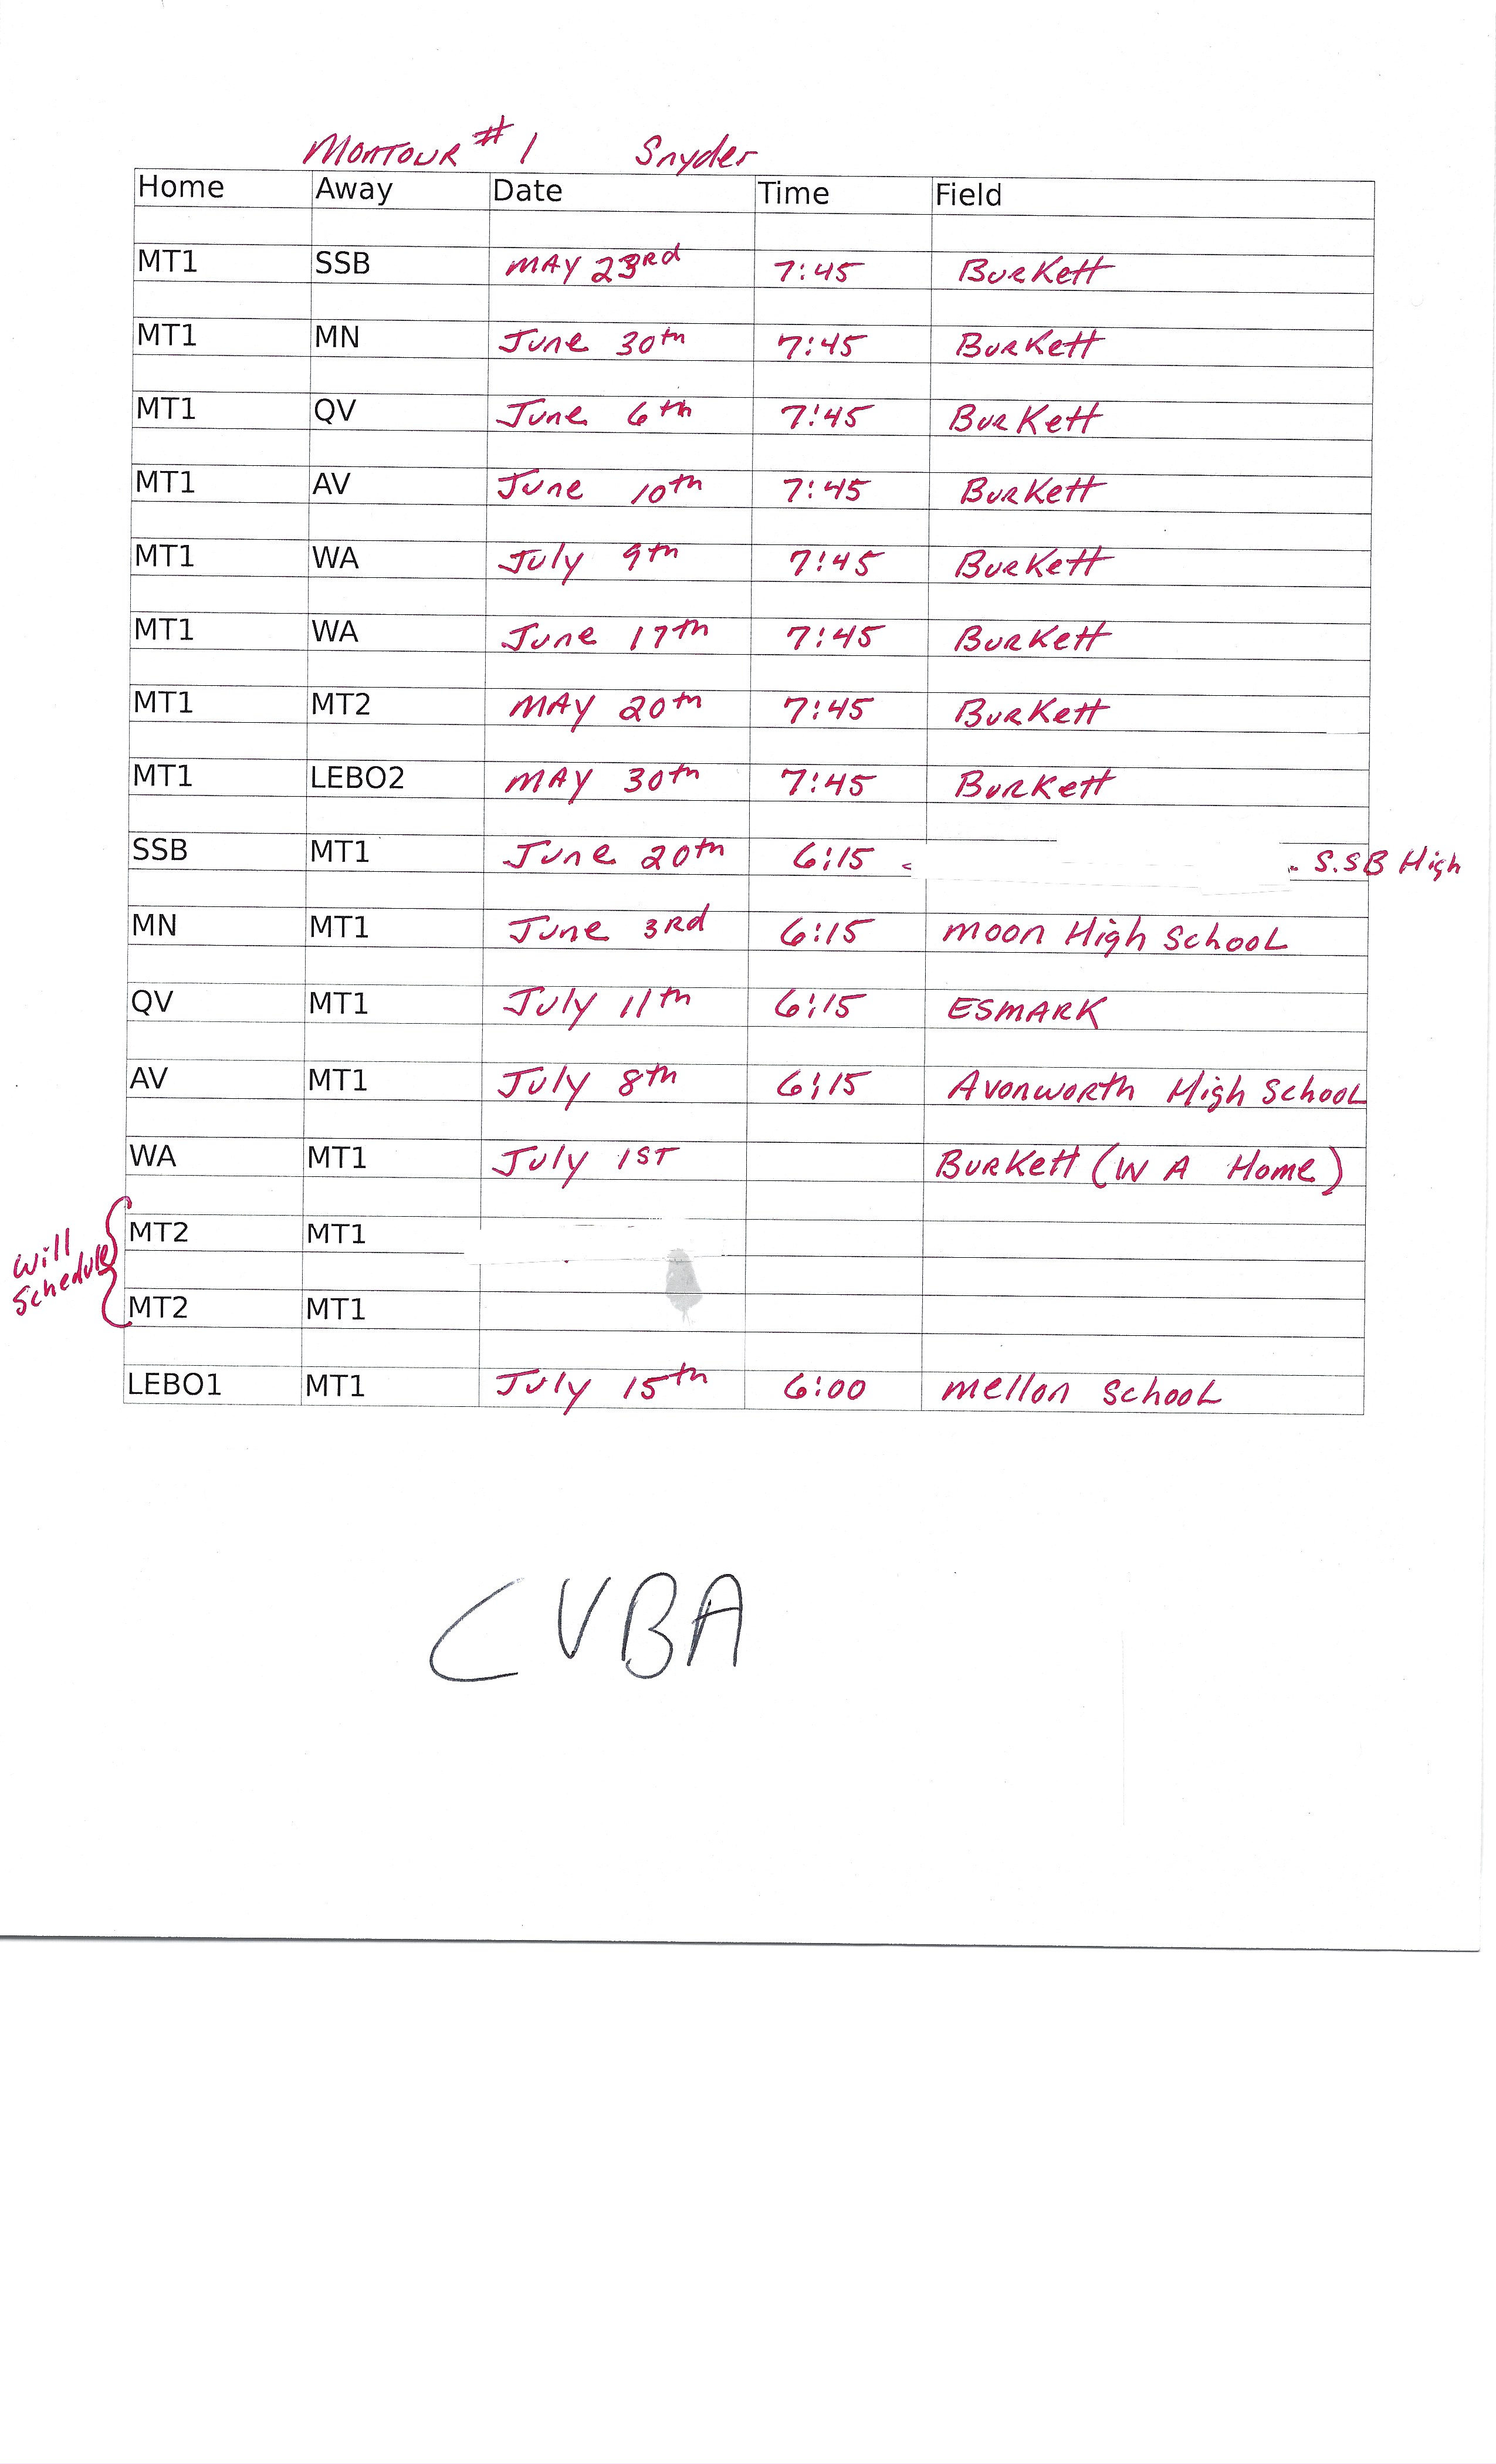 MONTOUR #1 Snyder
Home Away Date Time Field
MT1 SSB MAY 23rd 7:45 BURKett
MT1 MN June 30th 7:45 BURKett
MT1 QV June 6th 7:45 BURKett
MT1 AV June 10th 7:45 BURKett
MT1 WA July 9th 7:45 BURKett
MT1 WA June 17th 7:45 BURKett
MT1 MT2 MAY 20th 7:45 BURKett
MT1 LEBO2 MAY 30th 7:45 BURKett
SSB MT1 June 20th 6:15 S.SB High
MN MT1 June 3rd 6:15 moon High School
QV MT1 July 11th 6:15 ESMARK
AV MT1 July 8th 6:15 Avonworth High School
WA MT1 July 1ST BURKett (W A Home)
will
schedule
MT2 MT1
MT2 MT1
LEBO1 MT1 July 15th 6:00 mellon School
CVBA